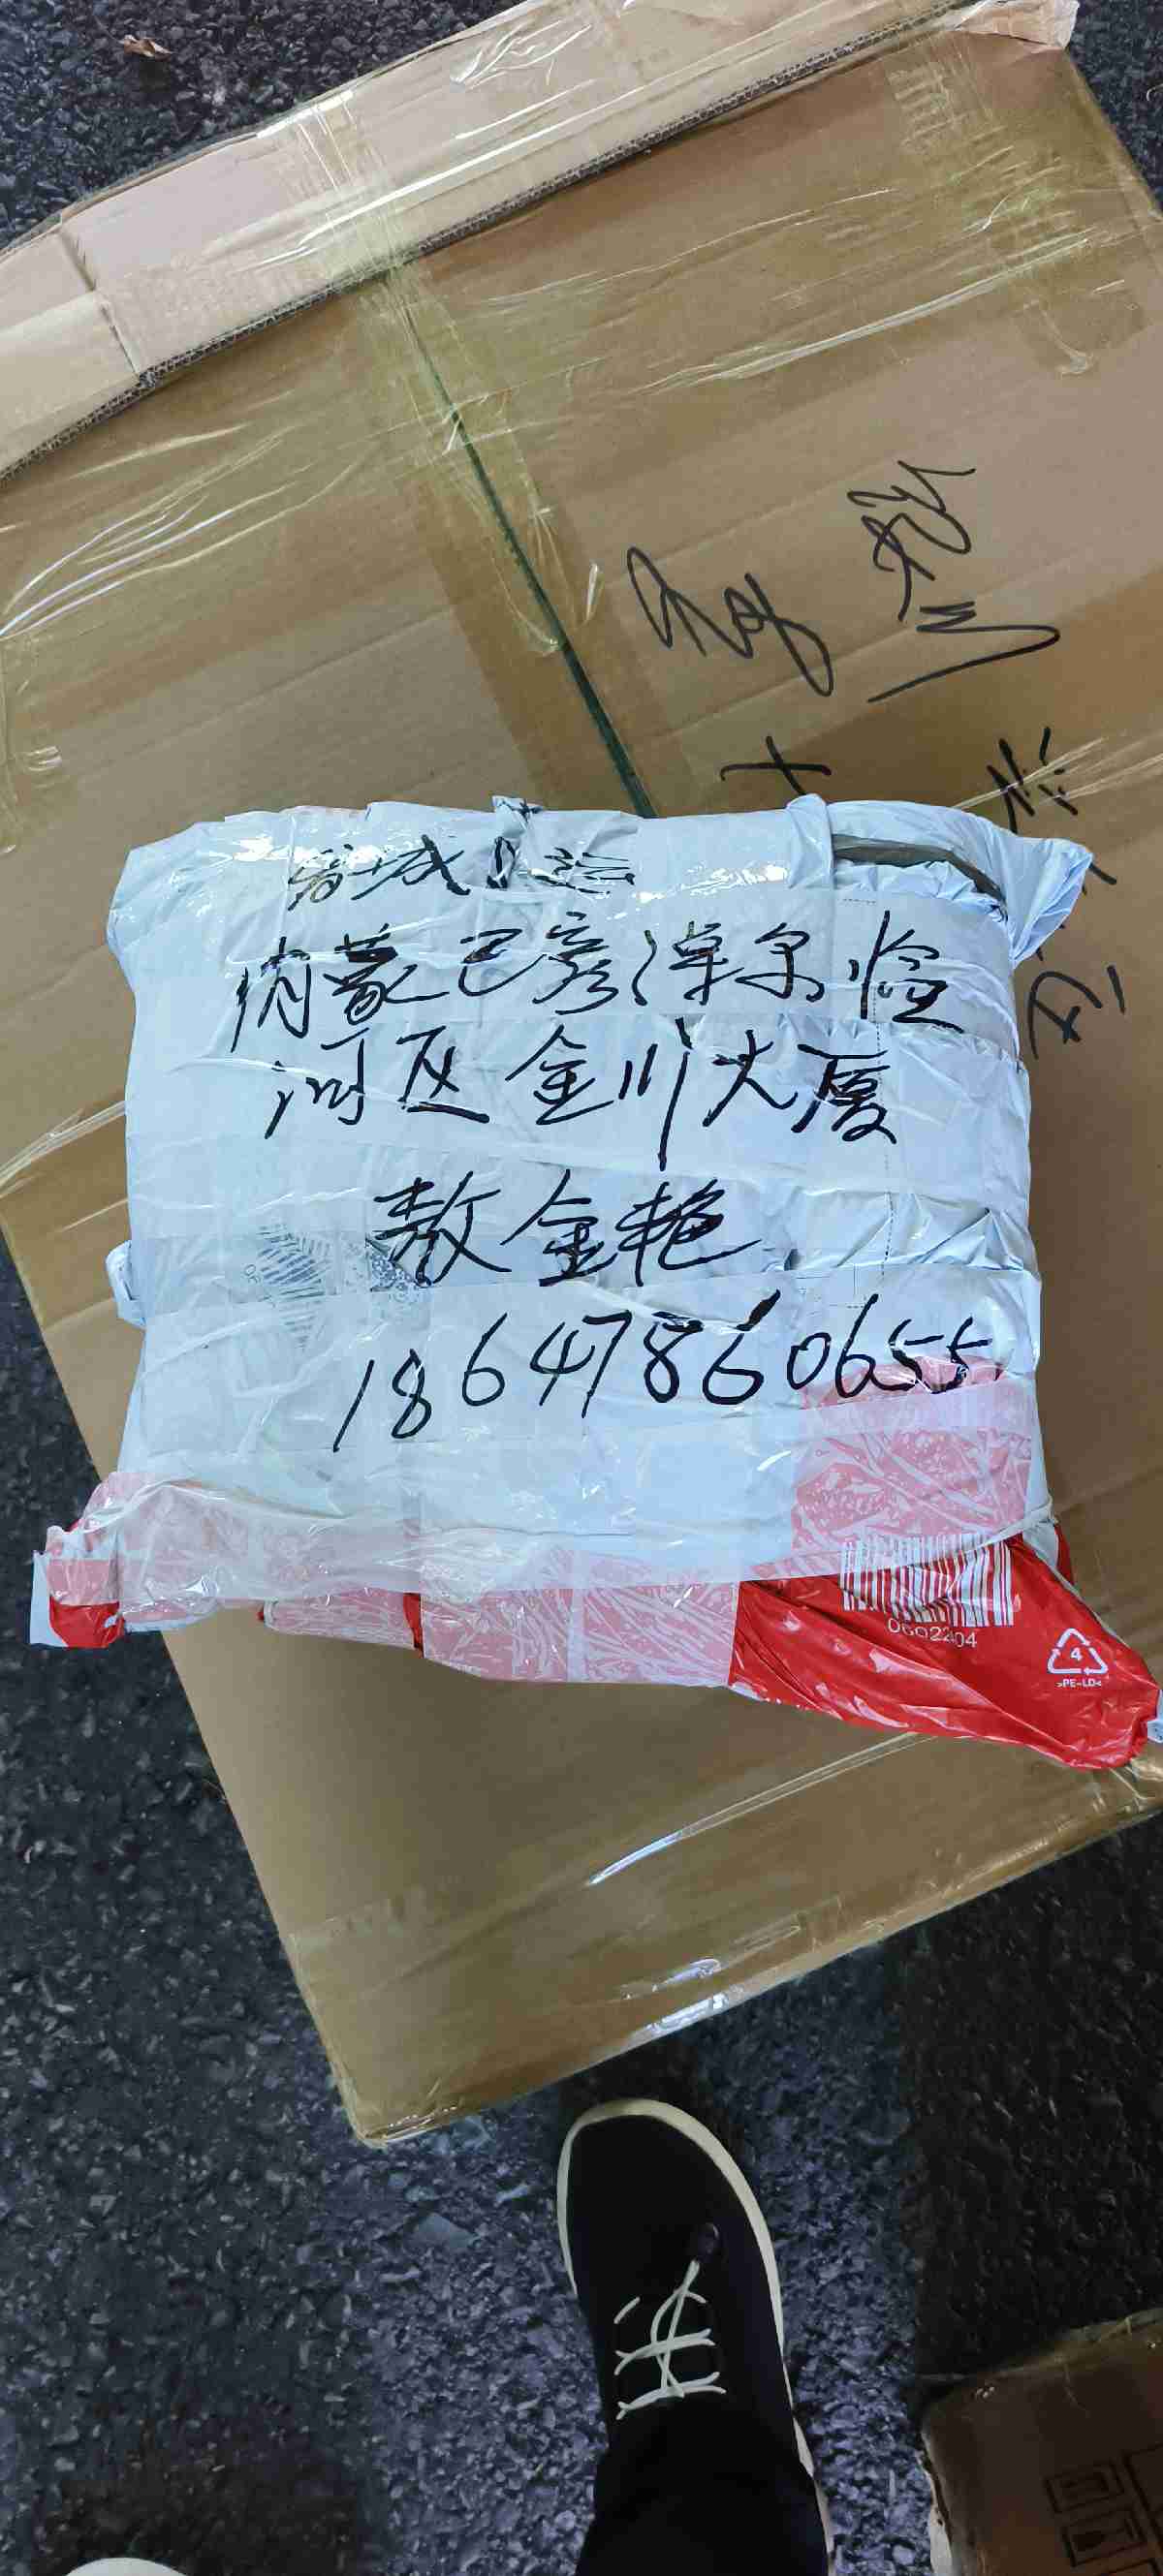 银川
蓉城
内蒙巴彦淖尔临
河区金川大厦
敖金艳
18647860655
0602204
4
>PE-LD<